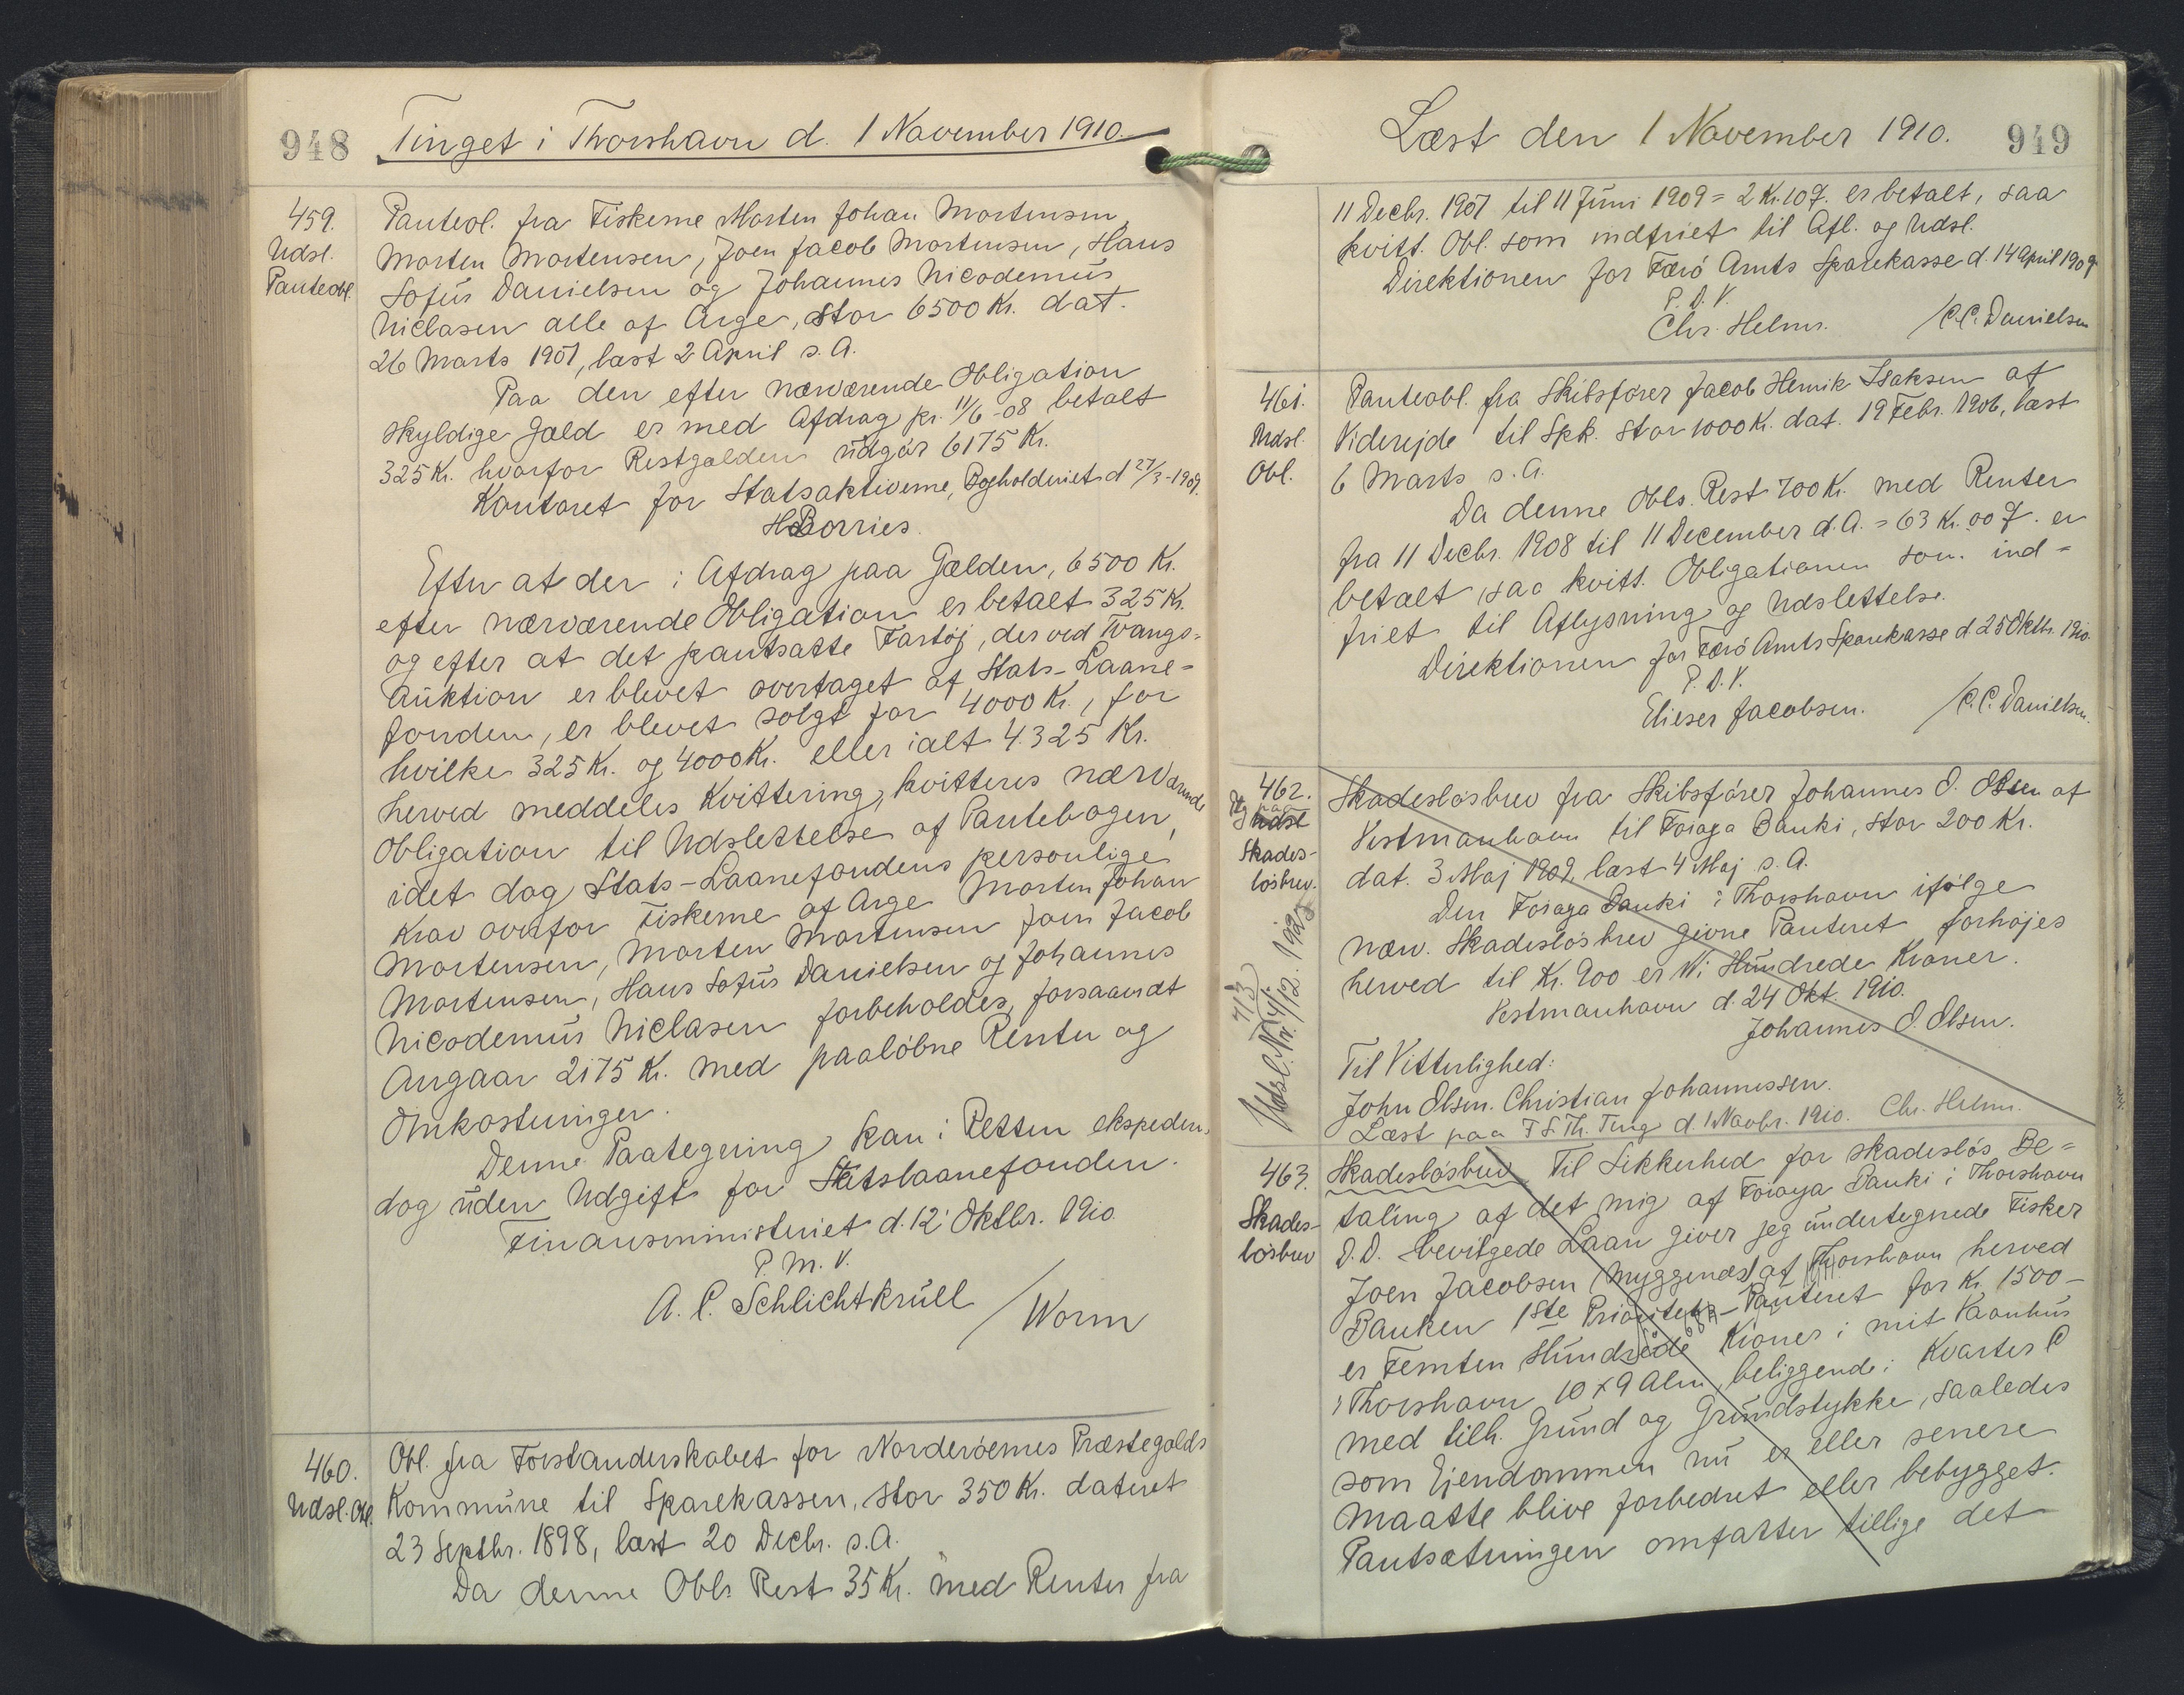 948
Tinget i Thorshavn d. 1 November 1910.
459.
Udsl.
Panteobl.
Panteol. fra Fiskerne Morten Johan Mortensen,
Morten Mortensen, Joen Jacob Mortensen, Hans
Sofus Danielsen og Johannes Nicodemus
Niclasen alle af Arge, stor 6500 Kr. dat.
26 Marts 1907, læst 2 April s. A.
Paa den efter nærværende Obligation
skyldige Gæld er med Afdrag pr. 11/6-08 betalt
325 Kr. hvorfor Restgælden udgør 6175 Kr.
Kontoret for Statsaktiverne, Bogholderiet d 27/3-1909.
H Borries.
Efter at der i Afdrag paa Gælden, 6500 Kr.
efter nærværende Obligation er betalt 325 Kr.
og efter at det pantsatte Fartøj, der ved Tvangs=
Auktion er blevet overtaget af Stats-Laane=
fonden, er blevet solgt for 4000 Kr., for
hvilke 325 Kr. og 4000 Kr. eller ialt 4325 Kr.
herved meddeles Kvittering, kvitteres nærværende
Obligation til Udslettelse af Pantebogen,
idet dog Stats-Laanefondens personlige
Krav overfor Fiskerne af Arge Morten Johan
Mortensen, Morten Mortensen Joen Jacob
Mortensen, Hans Sofus Danielsen og Johannes
Nicodemus Niclasen forbeholdes, forsaavidt
Angaar 2175 Kr. med paaløbne Renter og
Omkostninger.
Denne Paategning kan i Retten ekspederes,
dog uden Udgift for Statslaanefonden.
Finansministeriet d. 12 Oktbr. 1910
P. M. V.
A. C. Schlichtkrull
/ Worm
460.
Udsl. Obl.
Obl. fra Forstanderskabet for Norderøernes Præstegælds
Kommune til Sparekassen, stor 350 Kr. dateret
23 Septbr. 1898, læst 20 Decbr. s. A.
Da denne Obls Rest 35 Kr. med Renter fra
Læst den 1 November 1910.
949
11 Decbr. 1907 til 11 Juni 1909 = 2 Kr. 10 Ø. er betalt, saa
kvitt. Obl. som indfriet til Afl. og Udsl.
Direktionen for Færø Amts Sparekasse d. 14 April 1909
P. D. V.
Chr. Helms.
/C. C. Danielsen
461.
Udsl.
Obl.
Panteobl. fra Skibsfører Jacob Henrik Isaksen af
Viderejde til Spk. stor 1000 K. dat. 19 Febr. 1906, læst
6 Marts s. A.
Da denne Obls. Rest 700 K. med Renter
fra 11 Decbr. 1908 til 11 December d. A. = 63 Kr. 00 Ø. er
betalt, saa kvitt. Obligationen som ind=
friet til Aflysning og Udslettelse.
Direktionen for Færø Amts Sparekasse d. 25 Oktbr. 1910.
P. D. V.
Elieser Jacobsen.
/C. C. Danielsen.
462.
Udsl
Skades-
løsbrev.
Udsl. Nr. 713
4/12. 1925
Skadesløsbrev fra Skibsfører Johannes O. Olsen af
Vestmanhavn til Føroya Banki, stor 200 Kr.
dat. 3 Maj 1909, læst 4 Maj s. A.
Den Føroya Banki i Thorshavn ifølge
nærv. Skadesløsbrev givne Panteret forhøjes
herved til Kr. 900 er Ni Hundrede Kroner.
Vestmanhavn d. 24 Okt. 1910.
Johannes O. Olsen.
Til Vitterlighed:
John Olsen. Christian Johannessen.
Læst paa F S. Th. Ting d. 1 Novbr. 1910. Chr. Helms.
463.
Skades-
løsbrev
Skadesløsbrev Til Sikkerhed for skadesløs Be=
taling af det mig af Føroya Banki i Thorshavn
D. D. bevilgede Laan giver jeg undertegnede Fisker
Joen Jacobsen (Myggenæs) af Thorshavn herved
Banken 1ste Prioritets-Panteret for Kr. 1500-
er Femten Hundrede Kroner i mit Vaanhus
i Thorshavn 10 x 9 Alen, beliggende i Kvarter C
med tilh. Grund og Grundstykke, saaledes
som Ejendommen nu er eller senere
maatte blive forbedret eller bebygget.
Pantsætningen omfatter tillige det